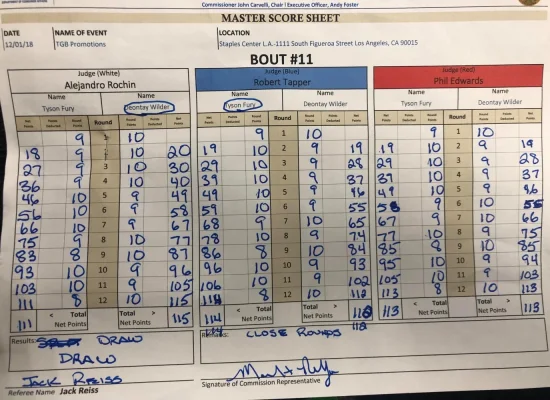 Commissioner John Carvelli, Chair | Executive Officer, Andy Foster
MASTER SCORE SHEET
DATE NAME OF EVENT LOCATION
12/01/18 TGB Promotions Staples Center L.A.-1111 South Figueroa Street Los Angeles, CA 90015
BOUT #11
Judge (White) Judge (Blue) Judge (Red)
Alejandro Rochin Robert Tapper Phil Edwards
Name Name Name Name Name Name
Tyson Fury Deontay Wilder Tyson Fury Deontay Wilder Tyson Fury Deontay Wilder
Net Points Points Deducted Round Points Round Round Points Points Deducted Net Points Net Points Points Deducted Round Points Round Round Points Points Deducted Net Points Net Points Points Deducted Round Points Round Round Points Points Deducted Net Points
9 1 10 9 1 10 9 1 10
18 9 10 20 19 10 2 9 19 19 10 2 9 19
27 9 3 10 30 29 10 3 9 28 29 10 3 9 28
36 9 4 10 40 39 10 4 9 37 39 10 4 9 37
46 10 5 9 49 49 10 5 9 46 49 10 5 9 46
56 10 6 9 58 59 10 6 9 55 58 9 6 10
66 10 7 9 67 68 9 7 10 65 67 9 7 10 66
75 9 8 10 77 78 10 8 9 74 77 10 8 9 75
83 8 9 10 87 86 8 9 10 84 85 8 9 10 85
93 10 10 9 96 96 10 10 9 93 95 10 10 9 94
103 10 11 9 105 106 10 11 9 102 105 10 11 9 103
111 8 12 10 115 114 8 12 10 112 113 8 12 10 113
< Total > < Total > < Total >
111 Net Points 115 114 Net Points 113 Net Points 113
114 112
Results: DRAW Remarks: CLOSE ROUNDS
DRAW
JACK REISS
Referee Name Jack Reiss Signature of Commission Representative